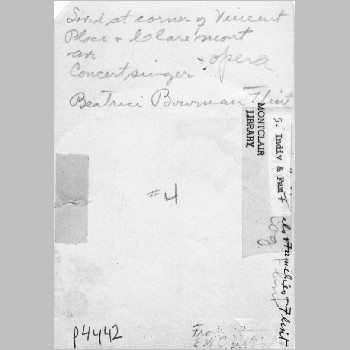 Lived at corner of Vincent
Place & Claremont
av.
Concert singer + opera
Beatrice Bowman Flint
MONTCLAIR
LIBRARY
5. Indiv & Fam
#4
p4442